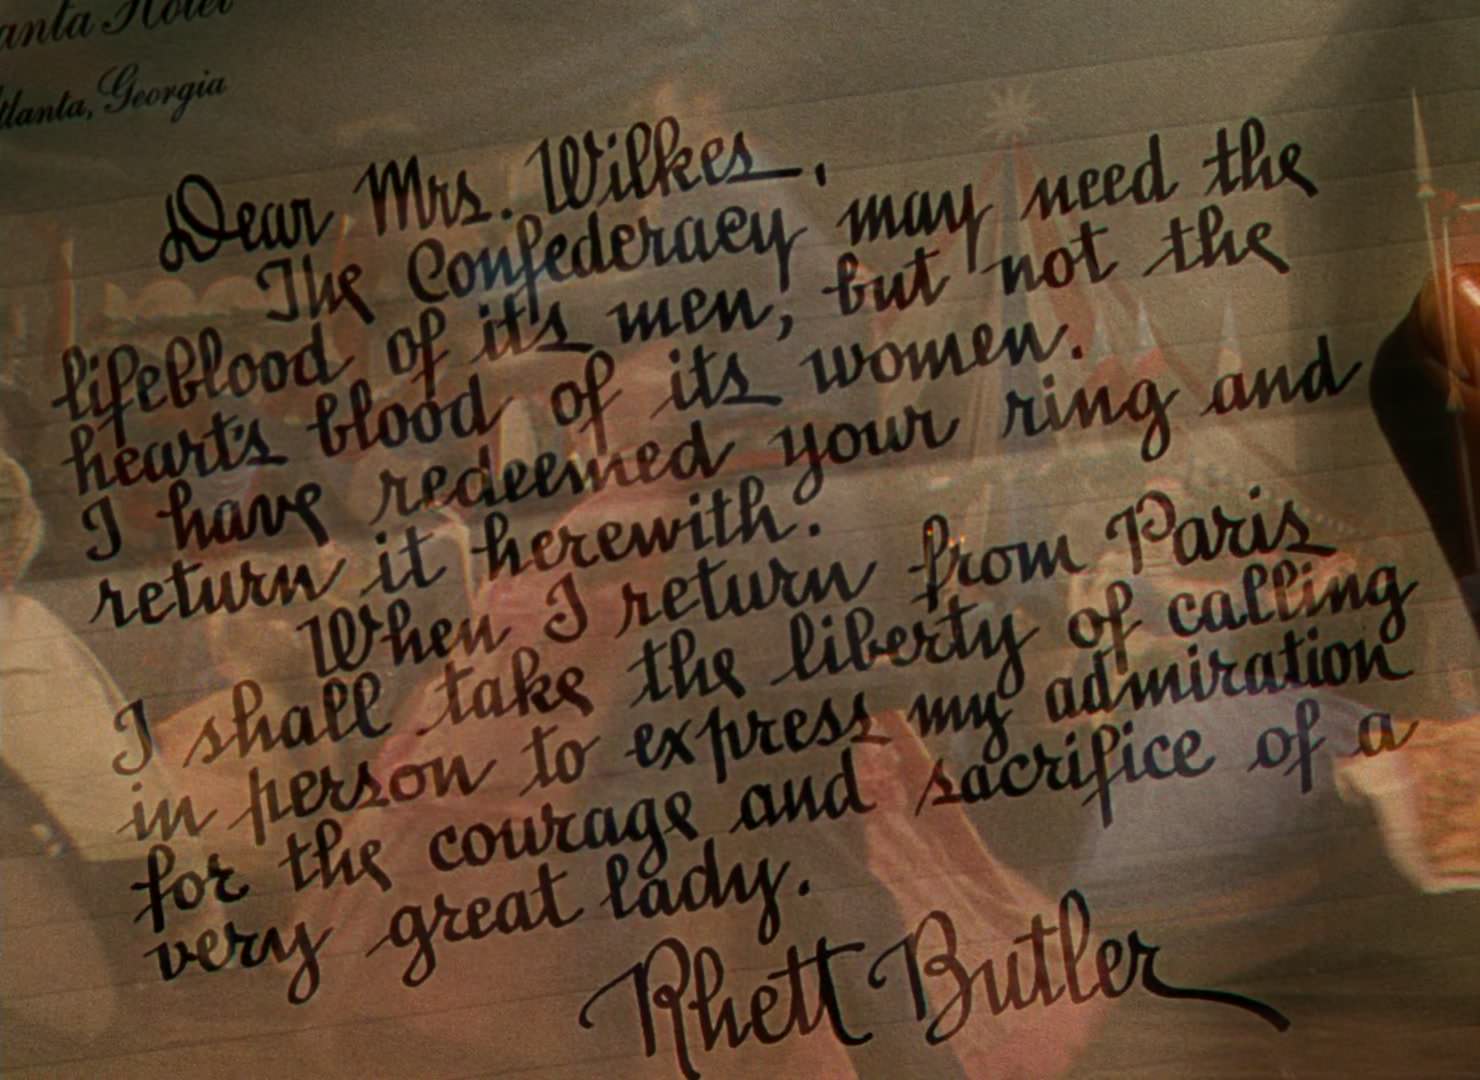 anta Hotel
tlanta, Georgia
Dear Mrs. Wilkes,
The Confederacy may need the
lifeblood of it's men, but not the
heart's blood of its women.
I have redeemed your ring and
return it herewith.
When I return from Paris
I shall take the liberty of calling
in person to express my admiration
for the courage and sacrifice of a
very great lady.
Rhett Butler